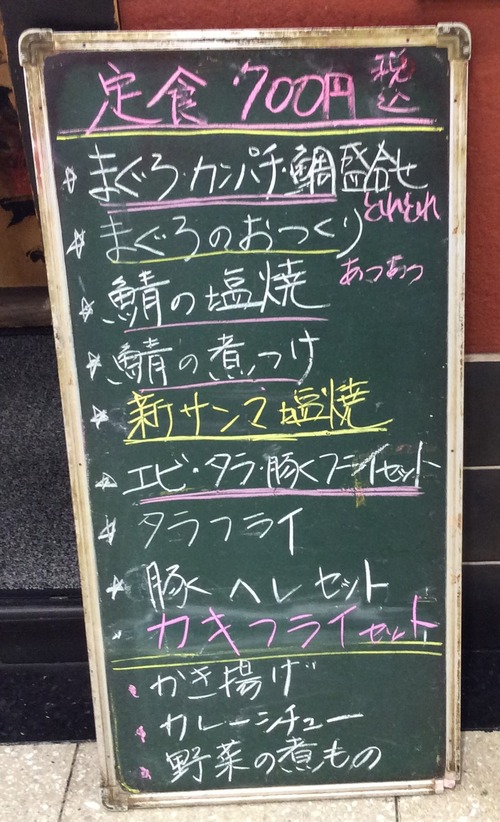 定食 700円 税込
☆ まぐろ・カンパチ・鯛盛合せ
とれとれ
☆ まぐろのおつくり
あつあつ
☆ 鯖の塩焼
☆ 鯖の煮つけ
☆ 新サンマ塩焼
☆ エビ・タラ・豚くフライセット
☆ タラフライ
☆ 豚ヘレセット
カキフライセット
・かき揚げ
・カレーシチュー
・野菜の煮もの